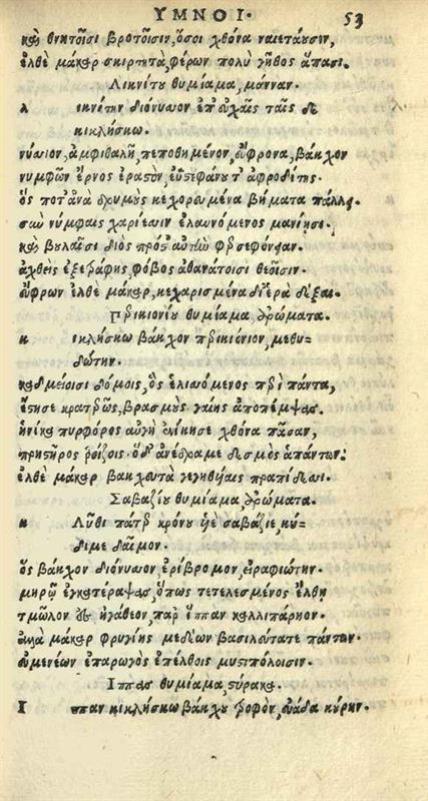 ΥΜΝΟΙ. 53
καὶ θνητοῖσι βροτοῖσιν, ὅσοι χθόνα ναιετάουσιν,
ἐλθὲ μάκαρ σκιρτητὰ, φέρων πολὺ γῆθος ἅπασι.
Λικνίτου θυμίαμα, μάνναν.
λ ικνίτην διόνυσον ἐπ' εὐχαῖς ταῖς δε
κικλήσκω.
νύσιον, ἀμφιθαλῆ, πεποθημένον, εὔφρονα, βάκχον
νυμφῶν ἔρνος ἐραστὸν, ἐϋστεφάνου τ' ἀφροδίτης.
ὅς ποτ' ἀνὰ δρυμοὺς κεχορευμένα βήματα πάλλες.
σὺν νύμφαις χαρίεσσιν ἐλαυνόμενος μανίησι.
καὶ βουλαῖσι διὸς πρὸς αὐτὴν φερσεφόνειαν.
ἀχθεὶς ἐξετράφης, φόβος ἀθανάτοισι θεοῖσιν.
εὔφρων ἐλθὲ μάκαρ, κεχαρισμένα δ' ἱερὰ δέξαι.
Περικιονίου θυμίαμα ἀρώματα.
κ ικλήσκω βάκχον περικιόνιον, μεθυ=
δώτην.
καδμείοισι δόμοις, ὃς ἑλισσόμενος περὶ πάντα,
ἔστησε κρατερῶς, βρασμοὺς γαίης ἀποπέμψας.
ἡνίκα πυρφόρος αὐγὴ ἐκίνησε χθόνα πᾶσαν,
πρηστῆρος ῥοίζοις· ὃ δ' ἀνέδραμε δεσμὸς ἁπάντων.
ἐλθὲ μάκαρ βακχευτὰ γεγηθυίαις πραπίδεσσι.
Σαβαζίου θυμίαμα, ἀρώματα.
κ Λῦθι πάτερ κρόνου υἱὲ σαβάζιε, κύ=
διμε δαῖμον.
ὃς βάκχον διόνυσον ἐρίβρομον, εἰραφιώτην.
μηρῷ ἐγκατέραψας, ὅπως τετελεσμένος ἔλθῃ
τμῶλον ἐς ἠγάθεον, παρ' ἵππαν καλλιπάρηον.
ἀλλὰ μάκαρ φρυγίης μεδέων βασιλεύτατε πάντων.
εὐμενέων ἐπαρωγὸς ἐπέλθοις μυστιπόλοισιν.
Ἵππας θυμίαμα, στύρακα.
Ι ππαν κικλήσκω βάκχου τροφὸν, εὐάδα κούρην.